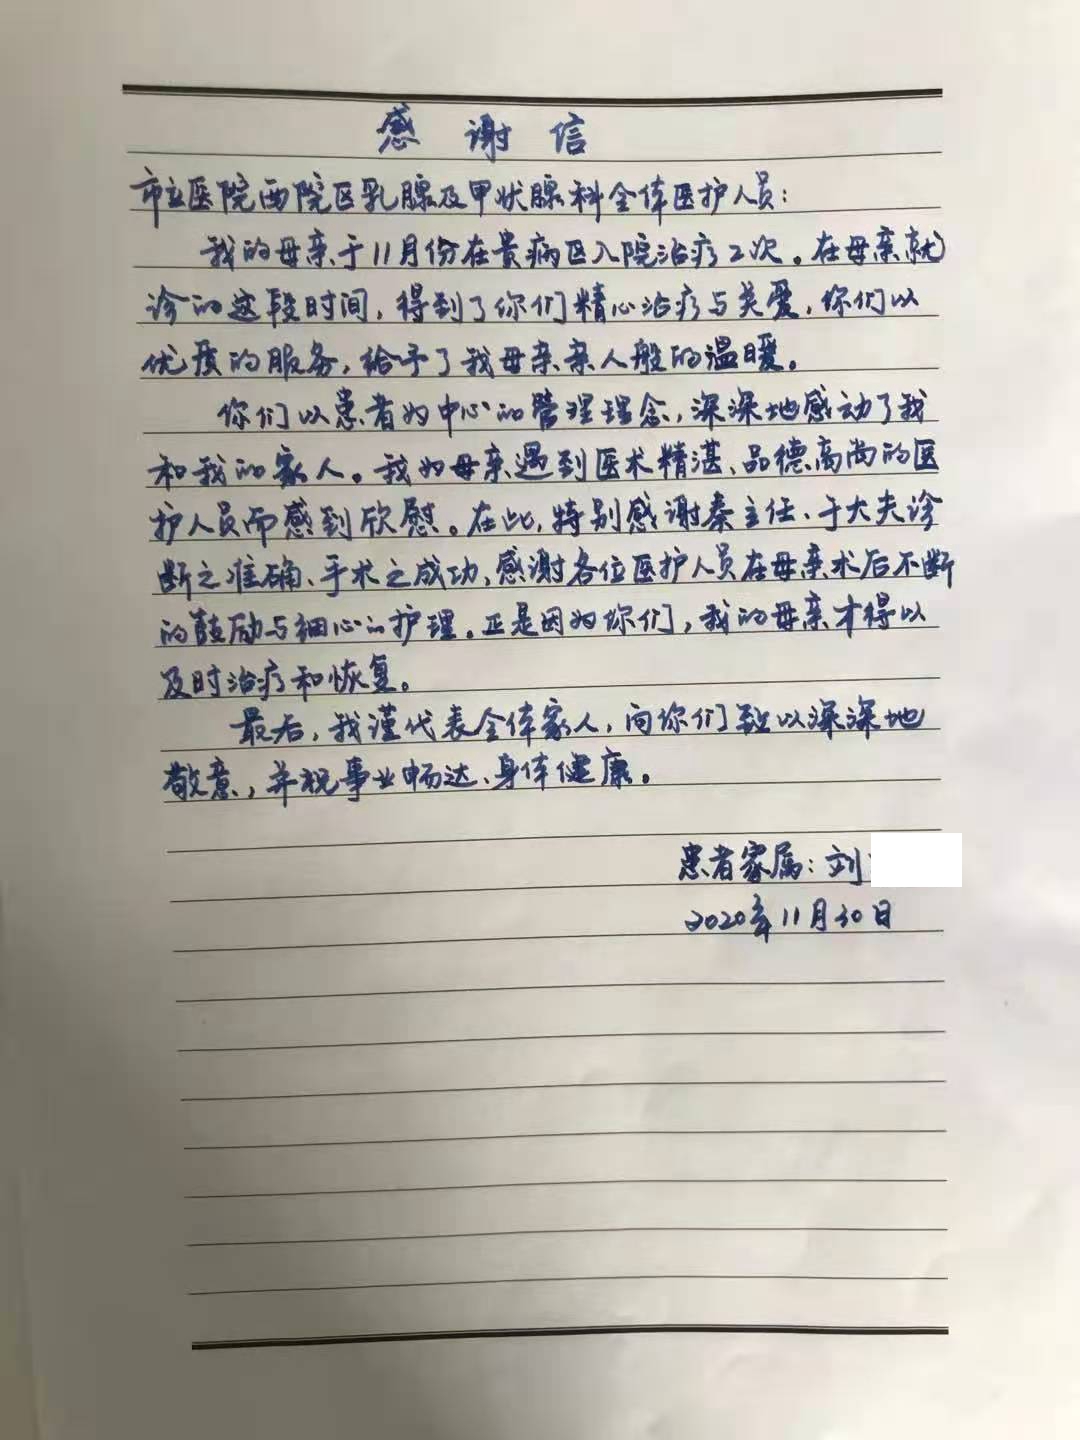 感谢信
市立医院西院区乳腺及甲状腺科全体医护人员：
我的母亲于11月份在贵病区入院治疗2次。在母亲就
诊的这段时间，得到了你们精心治疗与关爱，你们以
优质的服务，给予了我母亲亲人般的温暖。
你们以患者为中心的管理理念，深深地感动了我
和我的家人。我为母亲遇到医术精湛、品德高尚的医
护人员而感到欣慰。在此，特别感谢秦主任、于大夫诊
断之准确、手术之成功，感谢各位医护人员在母亲术后不断
的鼓励与细心的护理。正是因为你们，我的母亲才得以
及时治疗和恢复。
最后，我谨代表全体家人，向你们致以深深地
敬意，并祝事业畅达、身体健康。
患者家属：刘
2020年11月30日